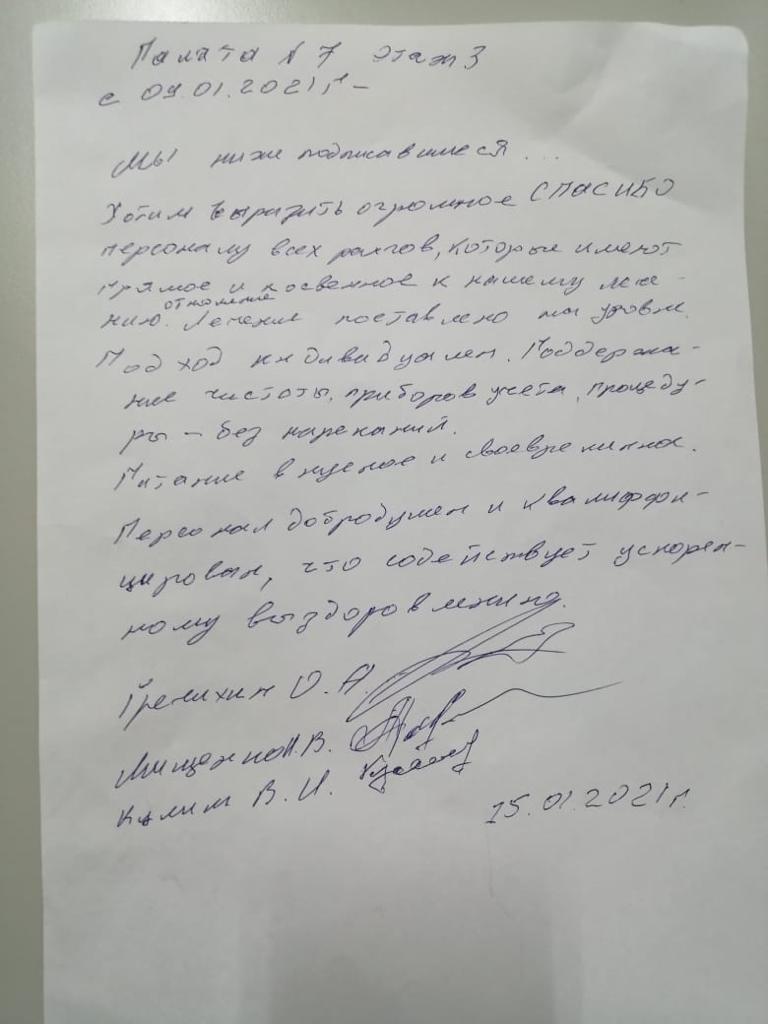 Палата N 7 этаж 3
с 09.01.2021 г –
Мы ниже подписавшиеся ...
Хотим выразить огромное СПАСИБО
персоналу всех рангов, которые имеют
прямое и косвенное к нашему лече-
отношение
нию. Лечение поставлено на уровне.
Подход индивидуален. Поддержа-
ние чистоты, приборов учета, процеду-
ры – без нареканий.
Питание вкусное и своевременно.
Персонал добродушен и квалиффи-
цирован, что содействует ускорен-
ному выздоровлению.
О.А.
Мищенко В.
В.И.
15.01.2021 г.